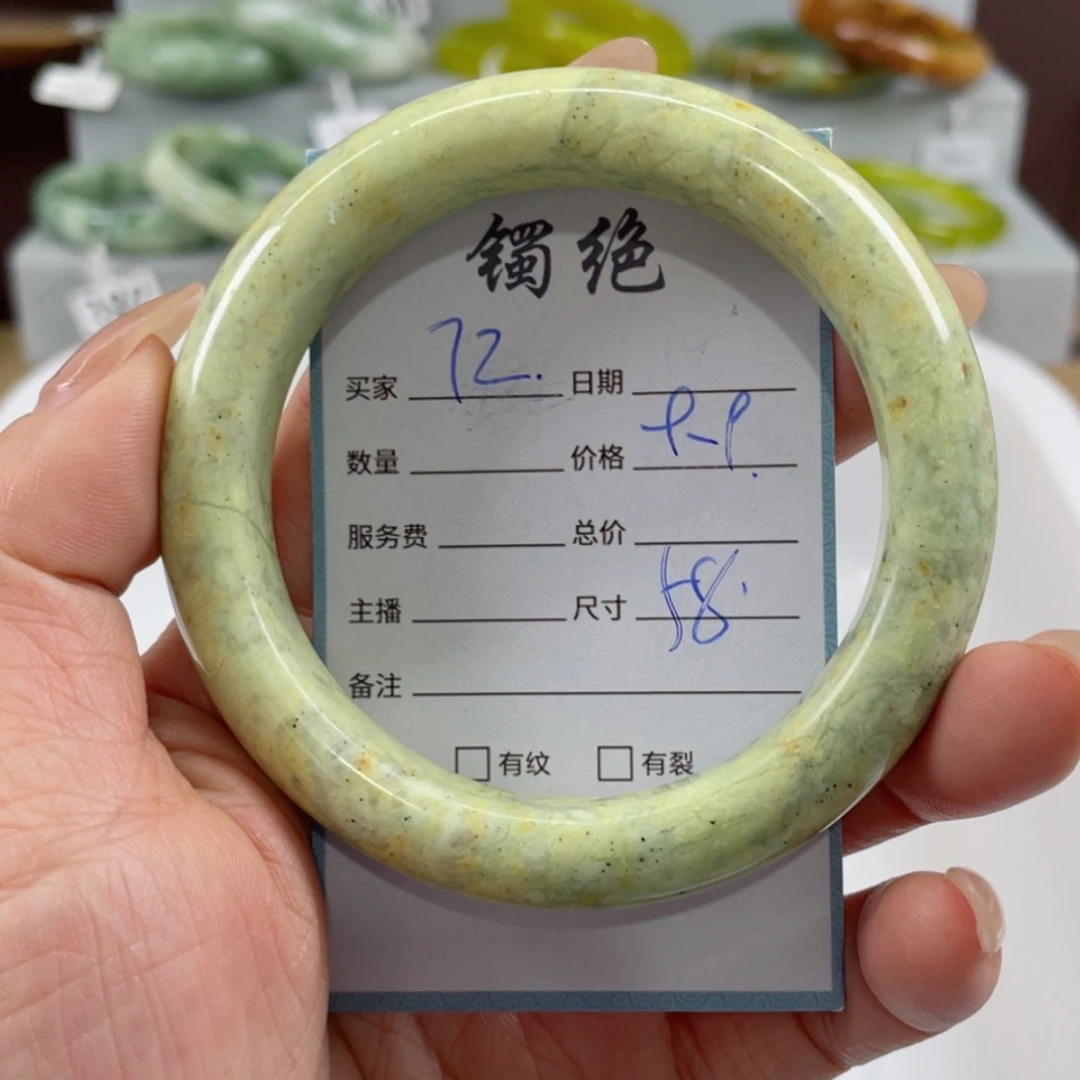 镯绝
买家 72. 日期
数量 价格
服务费 总价
主播 尺寸 58.
备注
□有纹 □有裂